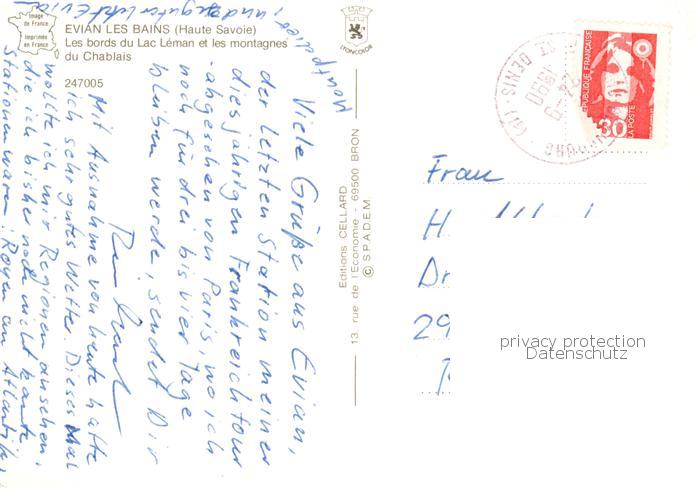 Image
de France
Imprimée
en France
EVIAN LES BAINS (Haute Savoie)
Les bords du Lac Léman et les montagnes
du Chablais
247005
LYONCOLOR
Viele Grüße aus Evian,
der letzten Station meiner
diesjährigen Frankreichtour
- abgesehen von Paris, wo ich
noch für drei bis vier Tage
bleiben werde, sendet Dir
Mit Ausnahme von heute hatte
ich sehr gutes Wetter. Dieses Mal
wollte ich mir Regionen ansehen,
die ich bisher noch nicht kannte.
Stationen waren: Royan am Atlantik,
Montpellier,
und
Evian
Editions CELLARD
13, rue de l'Economie - 69500 BRON
© S.P.A.D.E.M.
ST DENIS
1990
REPUBLIQUE FRANÇAISE
30
LA POSTE
Frau
H.
Dr
29
privacy protection
Datenschutz